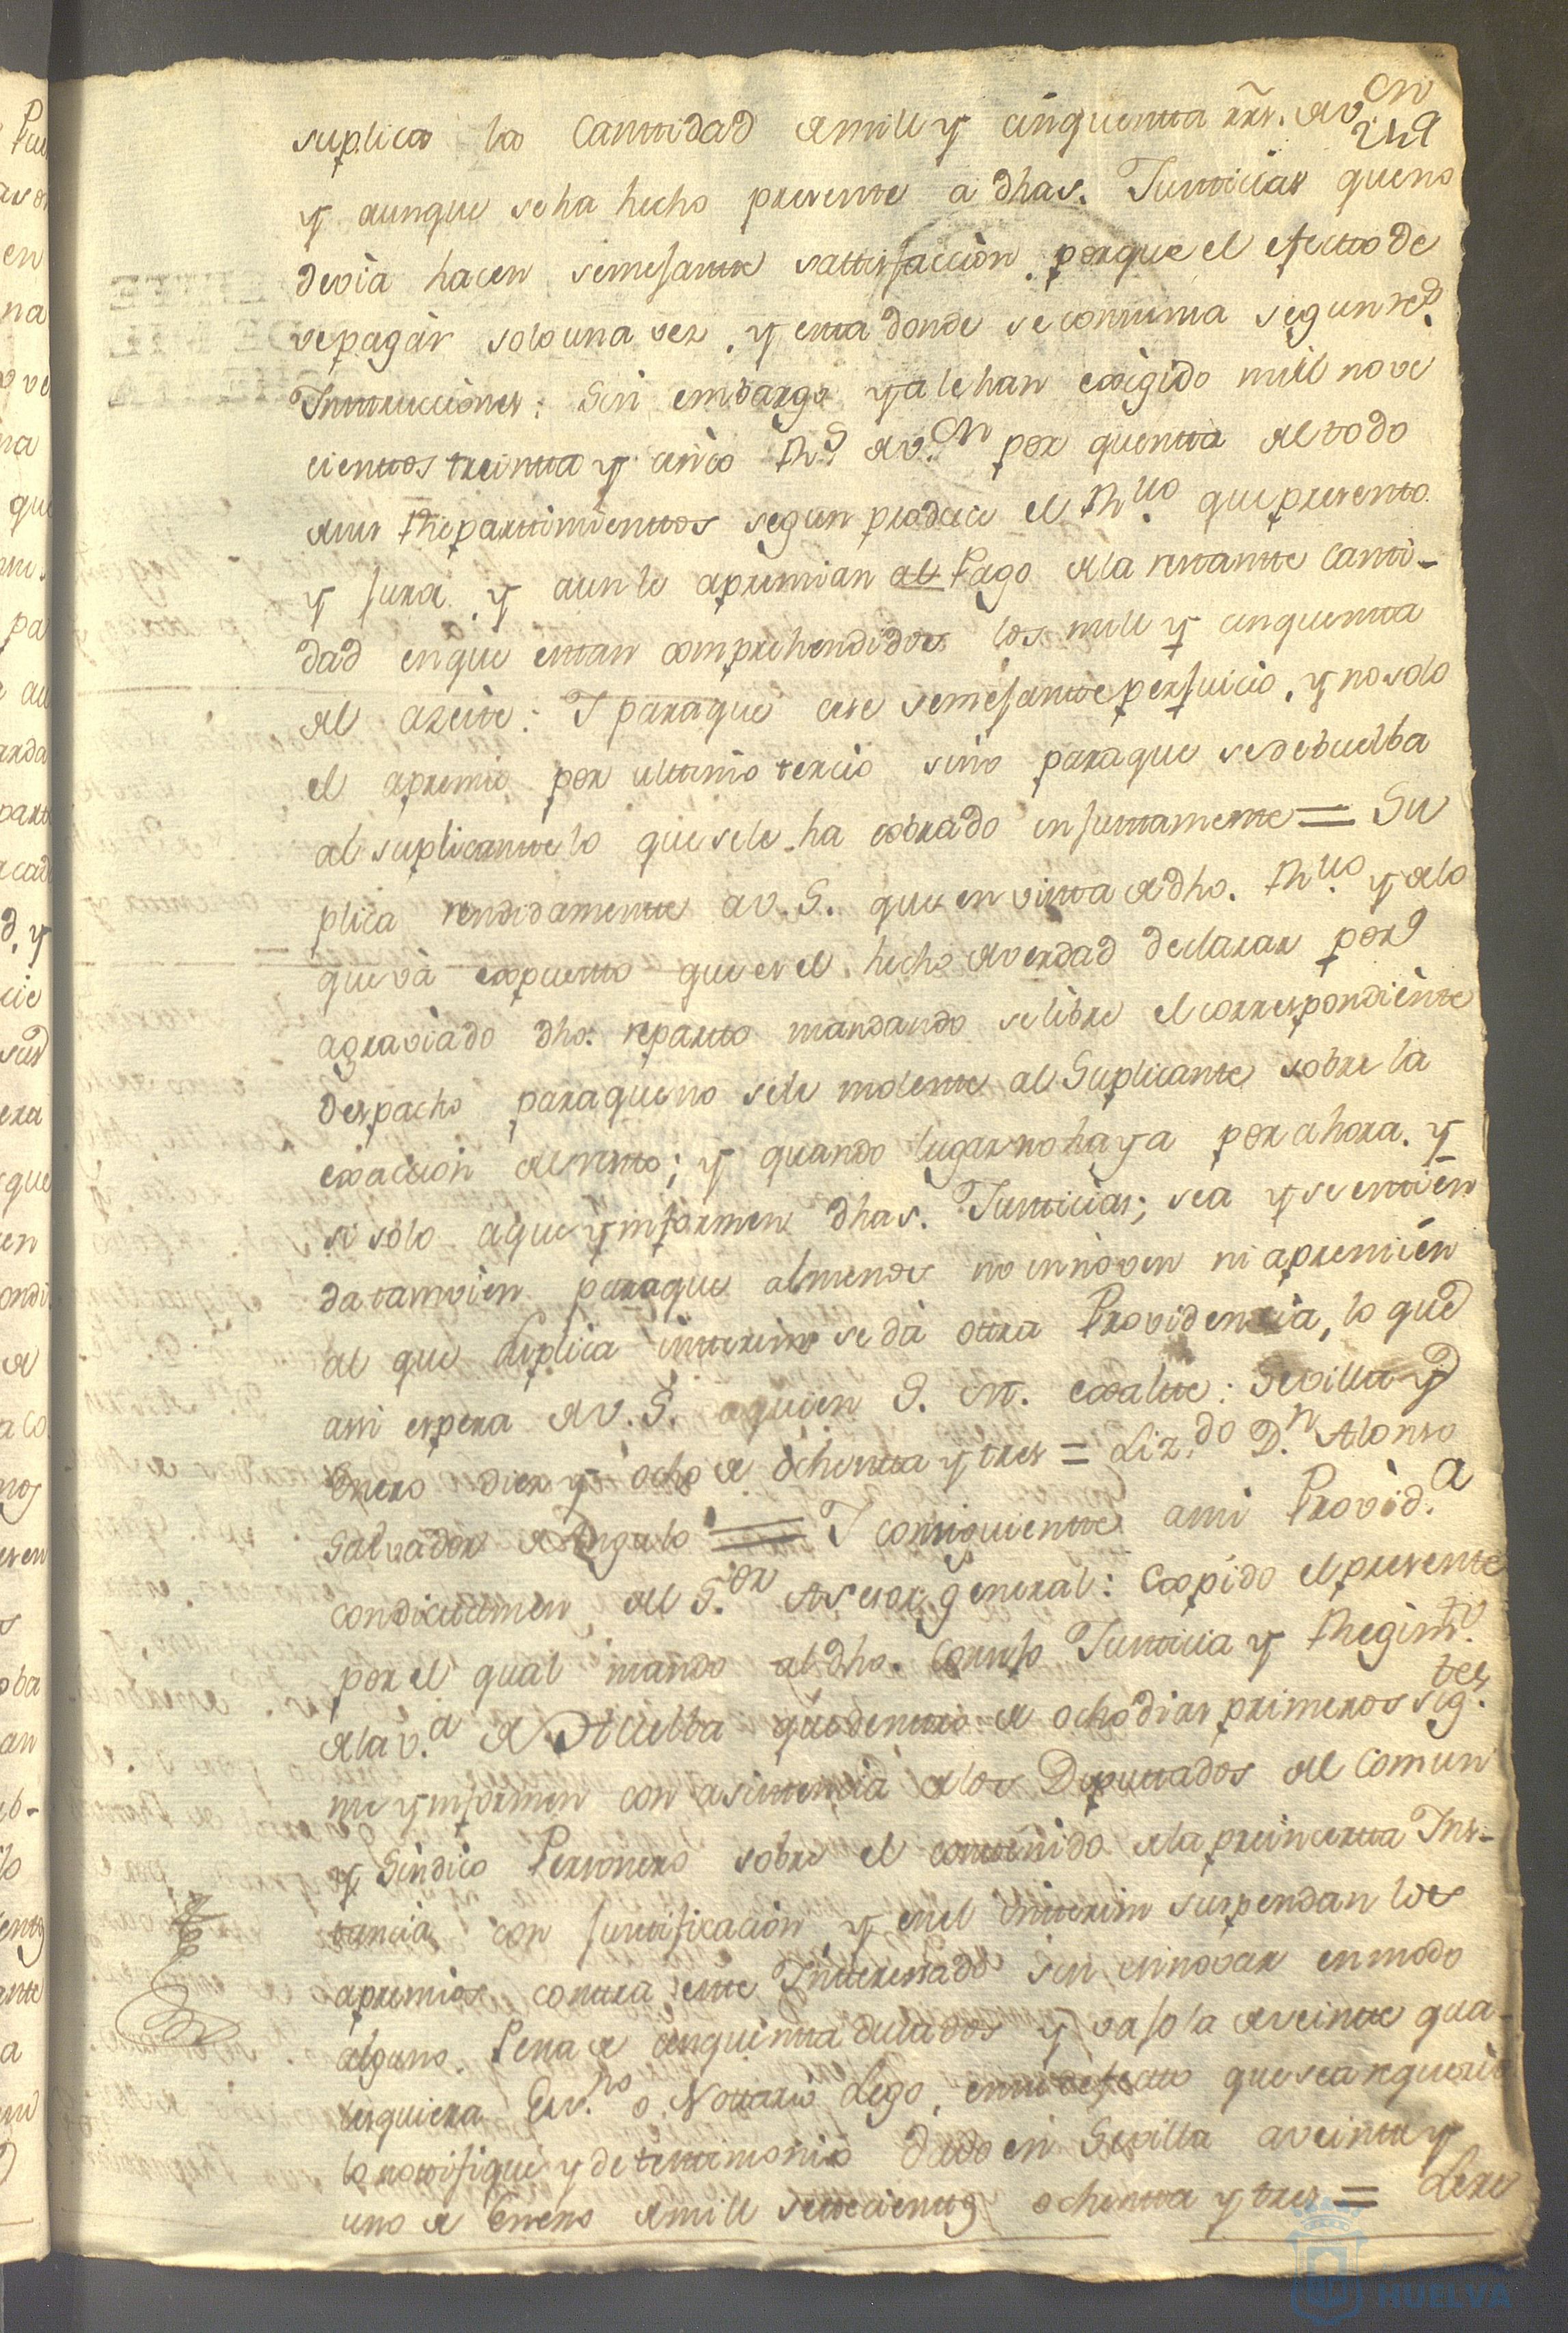 suplica la Cantidad de mill y cinquenta rrs. de v.on
249
y aunque se ha hecho presente a dhas. Justicias que no
devia hacer semejante sattisfaccion, porque el efecto de
ve pagar solo una vez, y esta donde se consuma segun rs.
Instrucciones: Sin embargo ya le han exigido mill nove
cientos treinta y cinco Rs. de v.on por quenta del todo
de sus Repartimientos segun produce el R.vo que presento
y jura, y aun le apremian al Pago de la restante canti-
dad en que estan comprehendidos los mill y cinquenta
del azeite: I para que cese semejante perjuicio, y no solo
el apremio por ultimo tercio sino para que se debuelba
al suplicante lo que se le ha cobrado injustamente = Su
plica rendidamente a V.S. que en vista de dho. R.vo y de lo
que va expuesto que es el hecho de verdad declarar por
agraviado dho. reparto mandando se libre el correspondiente
Despacho para que no se le moleste al Suplicante sobre la
exaccion del resto; y quando lugar no haya por ahora, y
si solo a que ynformen dhas. Justicias; sea y se entien
da tamvien para que al menos no innoven ni apremien
al que suplica interin se da ottra Providencia, lo que
assi espera de V.S. a quien D. m. exalte: Sevilla y
Enero diez y ocho de ochenta y tres = Liz.do D.n Alonso
Salvador de Angulo = I consiguiente a mi Provid.a
con dictamen del S.or Asesor general: Expido el presente
por el qual mando al dho. Consejo Justicia y Regim.to
de la V.a de Huelba que dentro de ocho dias primeros sig.tes
me ynformen con asistencia de los Diputtados del Comun
y Sindico Personero sobre el contenido de la preincerta Ins-
tancia con justificacion y en el interim suspendan los
apremios contra este Interesado sin innovar en modo
alguno, Pena de cinquenta ducados y vajo la de veinte qua-
lesquiera Esv.no o Notario Lego, en su defecto que sea requerido
lo notifique y de testimonio Dado en Sevilla a veinte y
uno de Enero de mill settecientos ochenta y tres =
HUELVA